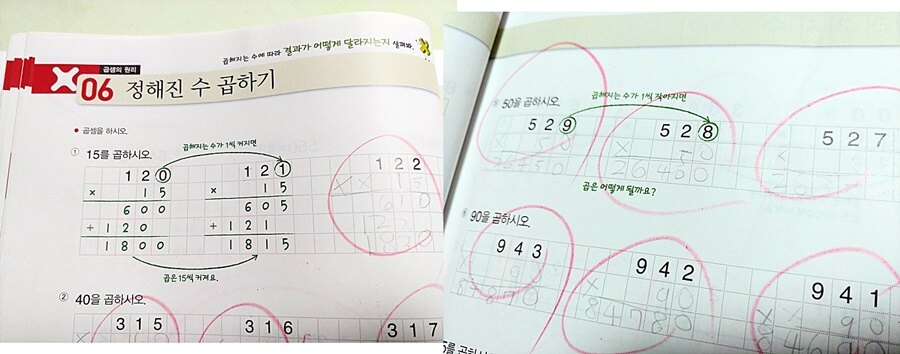 곱해지는 수에 따라 결과가 어떻게 달라지는지 살펴봐.
곱셈의 원리
06 정해진 수 곱하기
• 곱셈을 하시오.
① 15를 곱하시오.
곱해지는 수가 1씩 커지면
1 2 0
× 1 5
6 0 0
+ 1 2 0
1 8 0 0
1 2 1
× 1 5
6 0 5
+ 1 2 1
1 8 1 5
1 2 2
× 1 5
6 1 0
1 2 2
1 8 3 0
곱은 15씩 커져요.
② 40을 곱하시오.
3 1 5
3 1 6
3 1 7
50을 곱하시오.
곱해지는 수가 1씩 작아지면
5 2 9
5 0
2 6 4 5 0
5 2 8
× 5 0
2 6 4 0 0
5 2 7
×
곱은 어떻게 될까요?
90을 곱하시오.
9 4 3
9
8 4 8 7 0
9 4 2
× 9 0
8 4 7 8 0
9 4 1
× 9 0
8 4 6 9 0